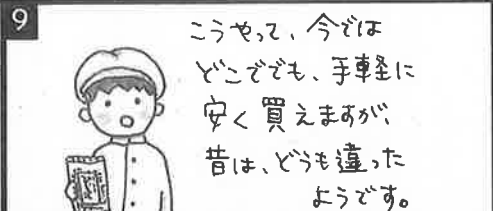 9
こうやって、今では
どこででも、手軽に
安く買えますが、
昔は、どうも違った
ようです。